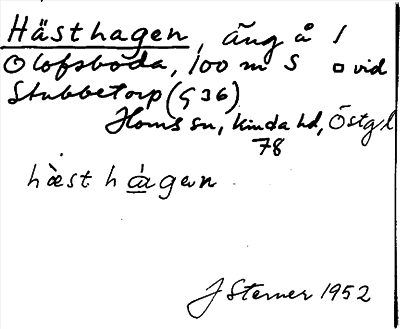 Hästhagen, äng å /
Olofsboda, 100 m S □ vid
Stubbetorp (G 36)
Horns sn, Kinda hd, Östgl
78
hæ̀st hágan
J Sterner 1952